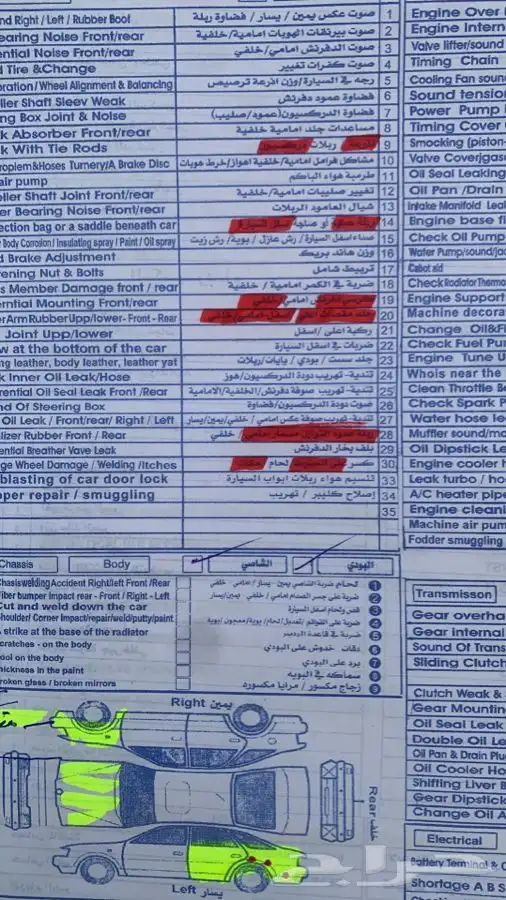 nd Right / Left / Rubber Boot صوت عكس يمين / يسار / فضاوة ربلة 1 Engine Over
earing Noise Front/rear صوت بيرنقات الهوبات امامية/خلفية 2 Engine Intern
ential Noise Front/rear صوت الدفرنش امامي/خلفي 3 Valve lifter/sound
d Tire &Change صوت كفرات تغيير 4 Timing Chain
oration/Wheel Alignment & Balancing رجه في السيارة/وزن اذرعة ترصيص 5 Cooling Fan soun
eller Shaft Sleev Weak فضاوة عمود دفرنش 6 Sound tension
ng Box Joint & Noise فضاوة الدركسيون(عمود/صليب) 7 Power Pump
k Absorber Front/rear مساعدات جلد امامية خلفية 8 Timing Cover
k With Tie Rods ربلات دركسيون 9 Smocking (piston-
roplem&Hoses Turnery/A Brake Disc مشاكل فرامل امامية/خلفية اهواز/خرط هوبات 10 Valve Cover/gas
air pump طرمبة هواء الباكم 11 Oil Seal Leaking
eller Shaft Joint Front/rear تغيير صليبات امامية/خلفية 12 Oil Pan /Drain
er Bearing Noise Front/rear شيال العامود الربلات 13 Intake Manifold Leak
ection bag or a saddle beneath car أو صلاجة اسفل السيارة 14 Engine base fi
Body Corrosion/ Insulating spray / Paint / Oil spray صداء اسفل السيارة / رش عازل / بوية/ رش زيت 15 Check Oil Pump
d Brake Adjustment وزن هاند بريك 16 Water Pump/sound/
ening Nut & Bolts تربيط شامل 17 Cabot aid
s Member Damage front / rear ضربة في الكمر امامية / خلفية 18 Check RadiatorThermo
erntial Mounting Front/rear كراسي دفرنش امامي/خلفي 19 Engine Support
r Arm RubberUpp/lower- Front - Rear جلد مقصات اعلى / اسفل-امامي/خلفي 20 Machine decora
Joint Upp/lower ركبة اعلى /اسفل 21 Change Oil&Fi
w at the bottom of the car ضربات في اسفل السيارة 22 Check Fuel Pu
ng leather, body leather, leather yat جلد سست / بودي / يايات/ربلات 23 Engine Tune U
k Inner Oil Leak/Hose تندية- تهريب دودة الدركسيون/هوز 24 Whois near the
erential Oil Seal Leak Front /Rear تندية- تهريب صوفة دفرنش/الخلفية/الامامية 25 Clean Throttle B
nd Of Steering Box صوت دودة الدركسيون/فضاوة 26 Check Spark P
Oil Leak / Front/rear/ Right / Left تندية- تهريب صوفة عكس امامي / خلفي/يمين/يسار 27 Water hose le
lizer Rubber Front / Rear ربلة عمود التوازن مسمار امامي / خلفي 28 Muffler sound/mo
ential Breather Vave Leak بلف بخار الدفرنش 29 Oil Dipstick Le
ge Wheel Damage / Welding /Itches كسر لحام 30 Engine cooler h
blasting of car door lock تنسيم هواء ربلات ابواب السيارة 33 Leak turbo / ho
per repair / smuggling إصلاح كليبر / تهريب 34 A/C heater pipe
35 Engine cleani
Machine air pum
Fodder smuggling
Chassis Body الشاصي البودي
Chasiswelding Accident Right/left Front /Rear لحام ضربة الشاصي يمين - يسار / امامي خلفي 1
Fiber bumper Impact rear - Front / Right - Left ضربة على جسر الصدام امامي / خلفي يمين/يسار 2
Cut and weld down the car قص ولحام اسفل السيارة 3
Shoulder/ Corner Impact/repair/weld/putty/paint 4
A strike at the base of the radiator ضربة في قاعدة الرديتر 5
cratches - on the body دقات خدوش على البودي 6
ool on the body برد على البودي 7
hickness in the paint سماكه في البويه 8
roken glass / broken mirrors زجاج مكسور / مرايا مكسورة 9
Transmisson
Gear overha
Gear internal
Sound Of Trans
Sliding Clutch
Clutch Weak &
Gear Mountin
Oil Seal Leak
Double Oil Le
Oil Pan & Drain Plu
Oil Cooler Ho
Shifting Liver B
Gear Dipstick
Change Oil A
Right يمين
Rear خلف
Left يسار
Electrical
Battery Terminal & C
Shortage A B S
حراج